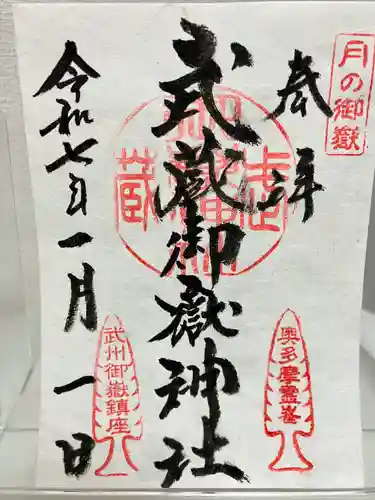 月の御嶽
奉拝
奥多摩霊峯
武蔵御嶽神社
武州御嶽鎮座
令和七年一月一日